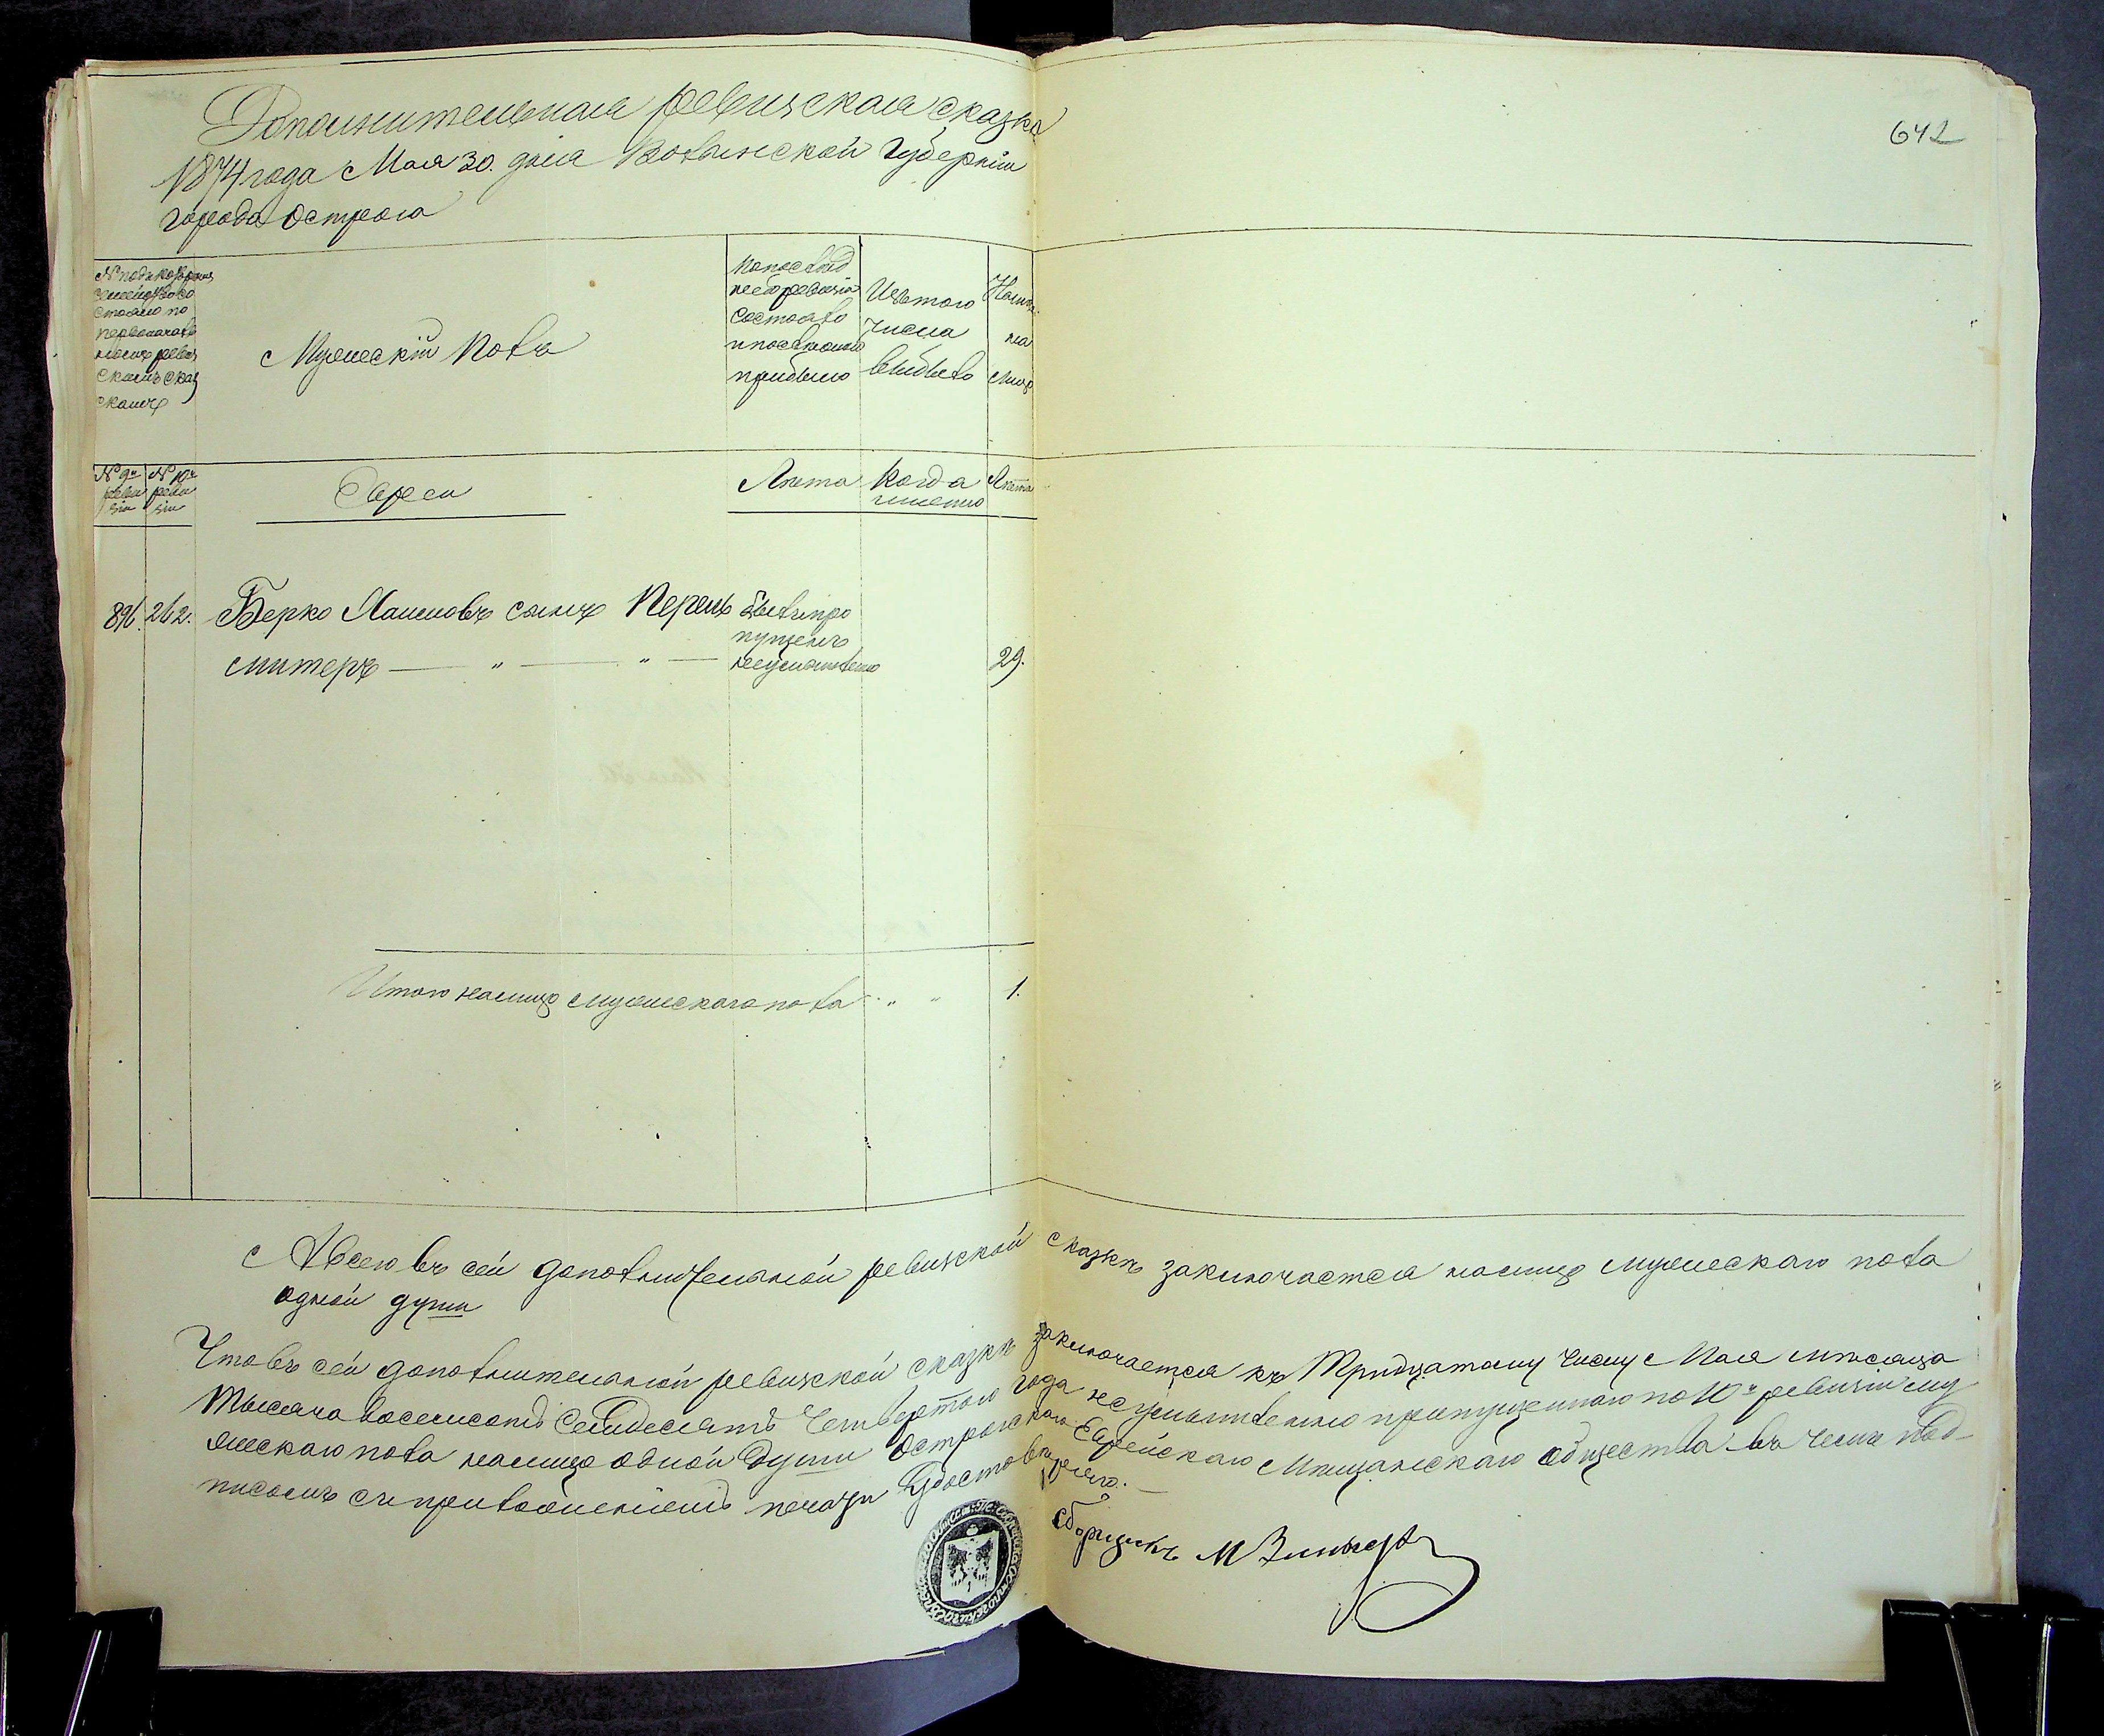 Дополнительная ревизская сказка
642
1874 года Мая 30. дня Волынской Губерніи
города Острога
№ подъ которымъ
семейство со
стояло по
первоначаль
нымъ ревиз
скимъ сказ
камъ
Мужескій полъ
По послѣд
ней ревизіи
состояло
и послѣ оной
прибыло
Изъ того
числа
выбыло
Нынѣ
на
лицо
№ 9й
реви
зіи
№ 10й
реви
зіи
Евреи
Лѣта
Когда
именно
Лѣта
896. 262. Берко Хаимовъ сынъ Перель
былъ про
пущенъ
неумышленно
29.
Итого налицо мужескаго пола " " 1.
А всего въ сей дополнительной ревизской сказкѣ заключается налицо мужескаго пола
одной души
Что въ сей дополнительной ревизской сказкѣ заключается къ Тридцатому числу Мая мѣсяца
Тысяча восемсотъ Семдесятъ Четвертого года неумышленно пропущенного по 10й ревизіи му
жескаго пола налицо одной души Острожскаго Еврейскаго Мѣщанскаго Общества въ чемъ под
писомъ съ приложеніемъ печати удостовѣряю.
Сборщикъ М